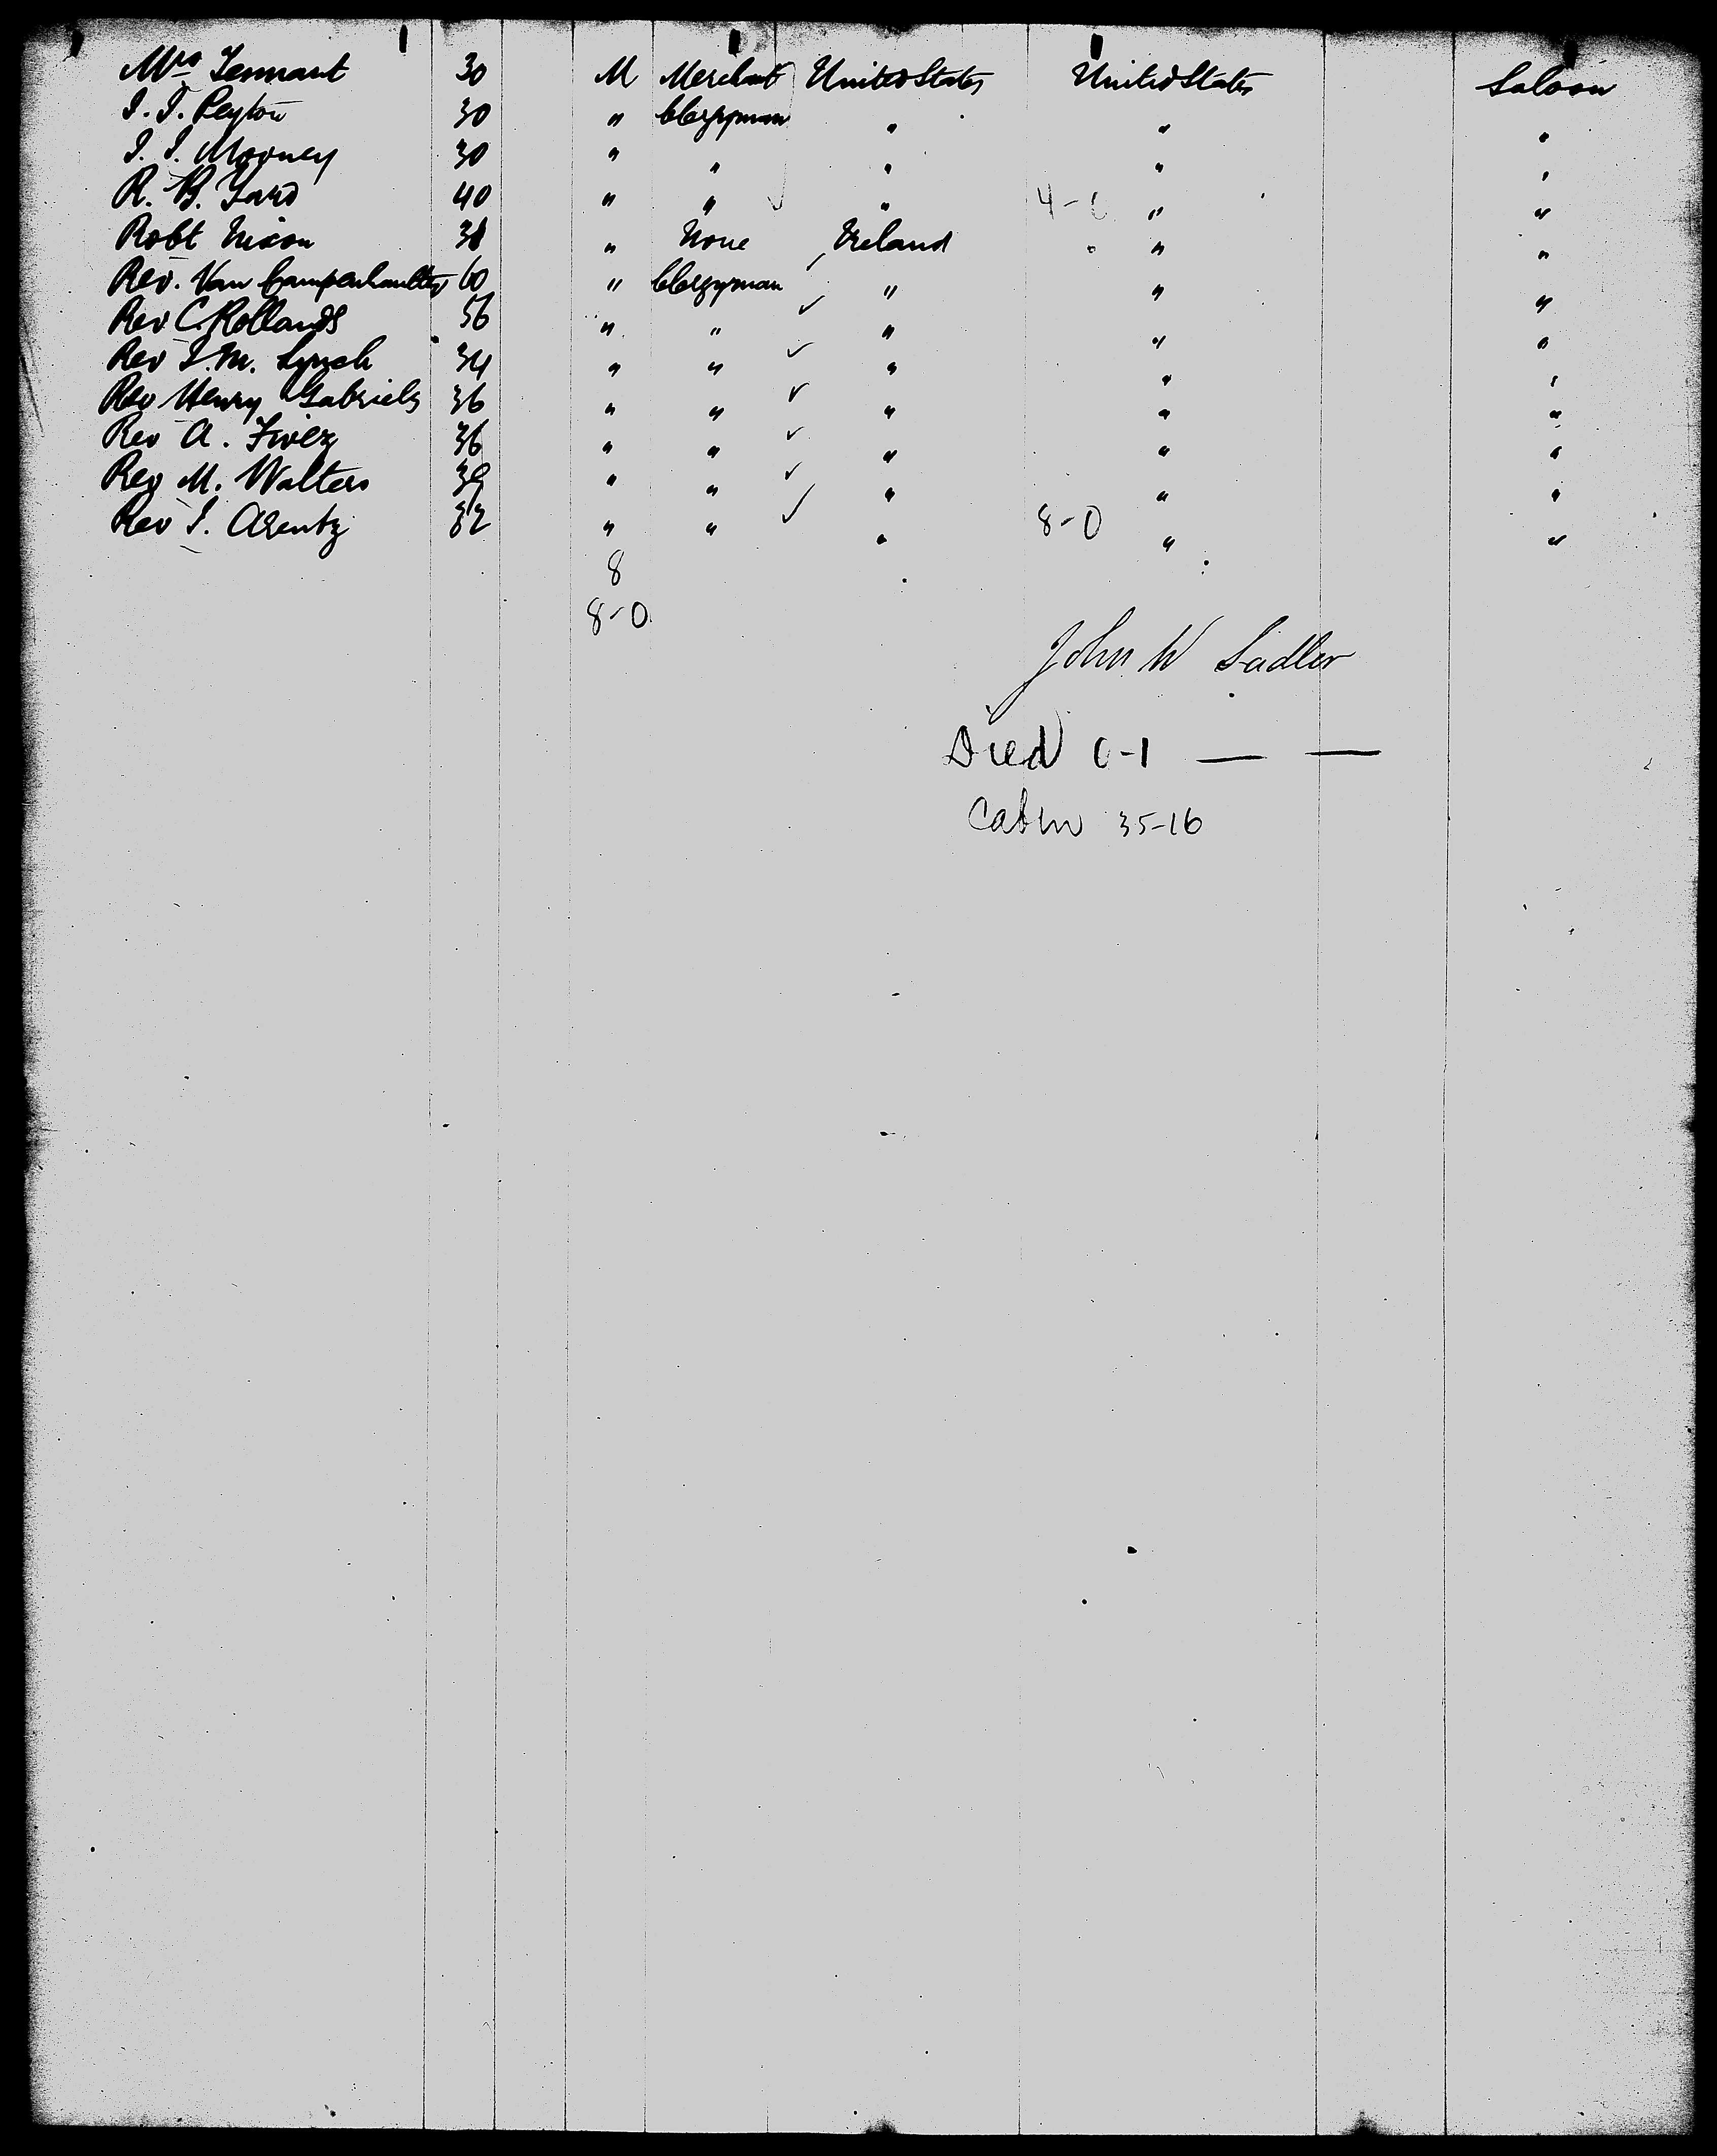 Mrs Tennant 30 M Merchant United States United States Saloon
I. T. Peyton 30 " Clergyman " " "
I. I. Mooney 30 " " " " "
R. B. Yard 40 " " " 4-0 " "
Robt Nixon 38 " None Ireland " "
Rev. Van Campenhaulten 60 " Clergyman " " "
Rev C. Rollands 56 " " " " "
Rev I. M. Lynch 34 " " " " "
Rev Henry Gabriels 36 " " " " "
Rev A. Fivez 36 " " " " "
Rev M. Walters 39 " " " " "
Rev I. Arentz 32 " " " 8-0 " "
8
8-0
John W Sadler
Died 0-1 — —
Cabin 35-16